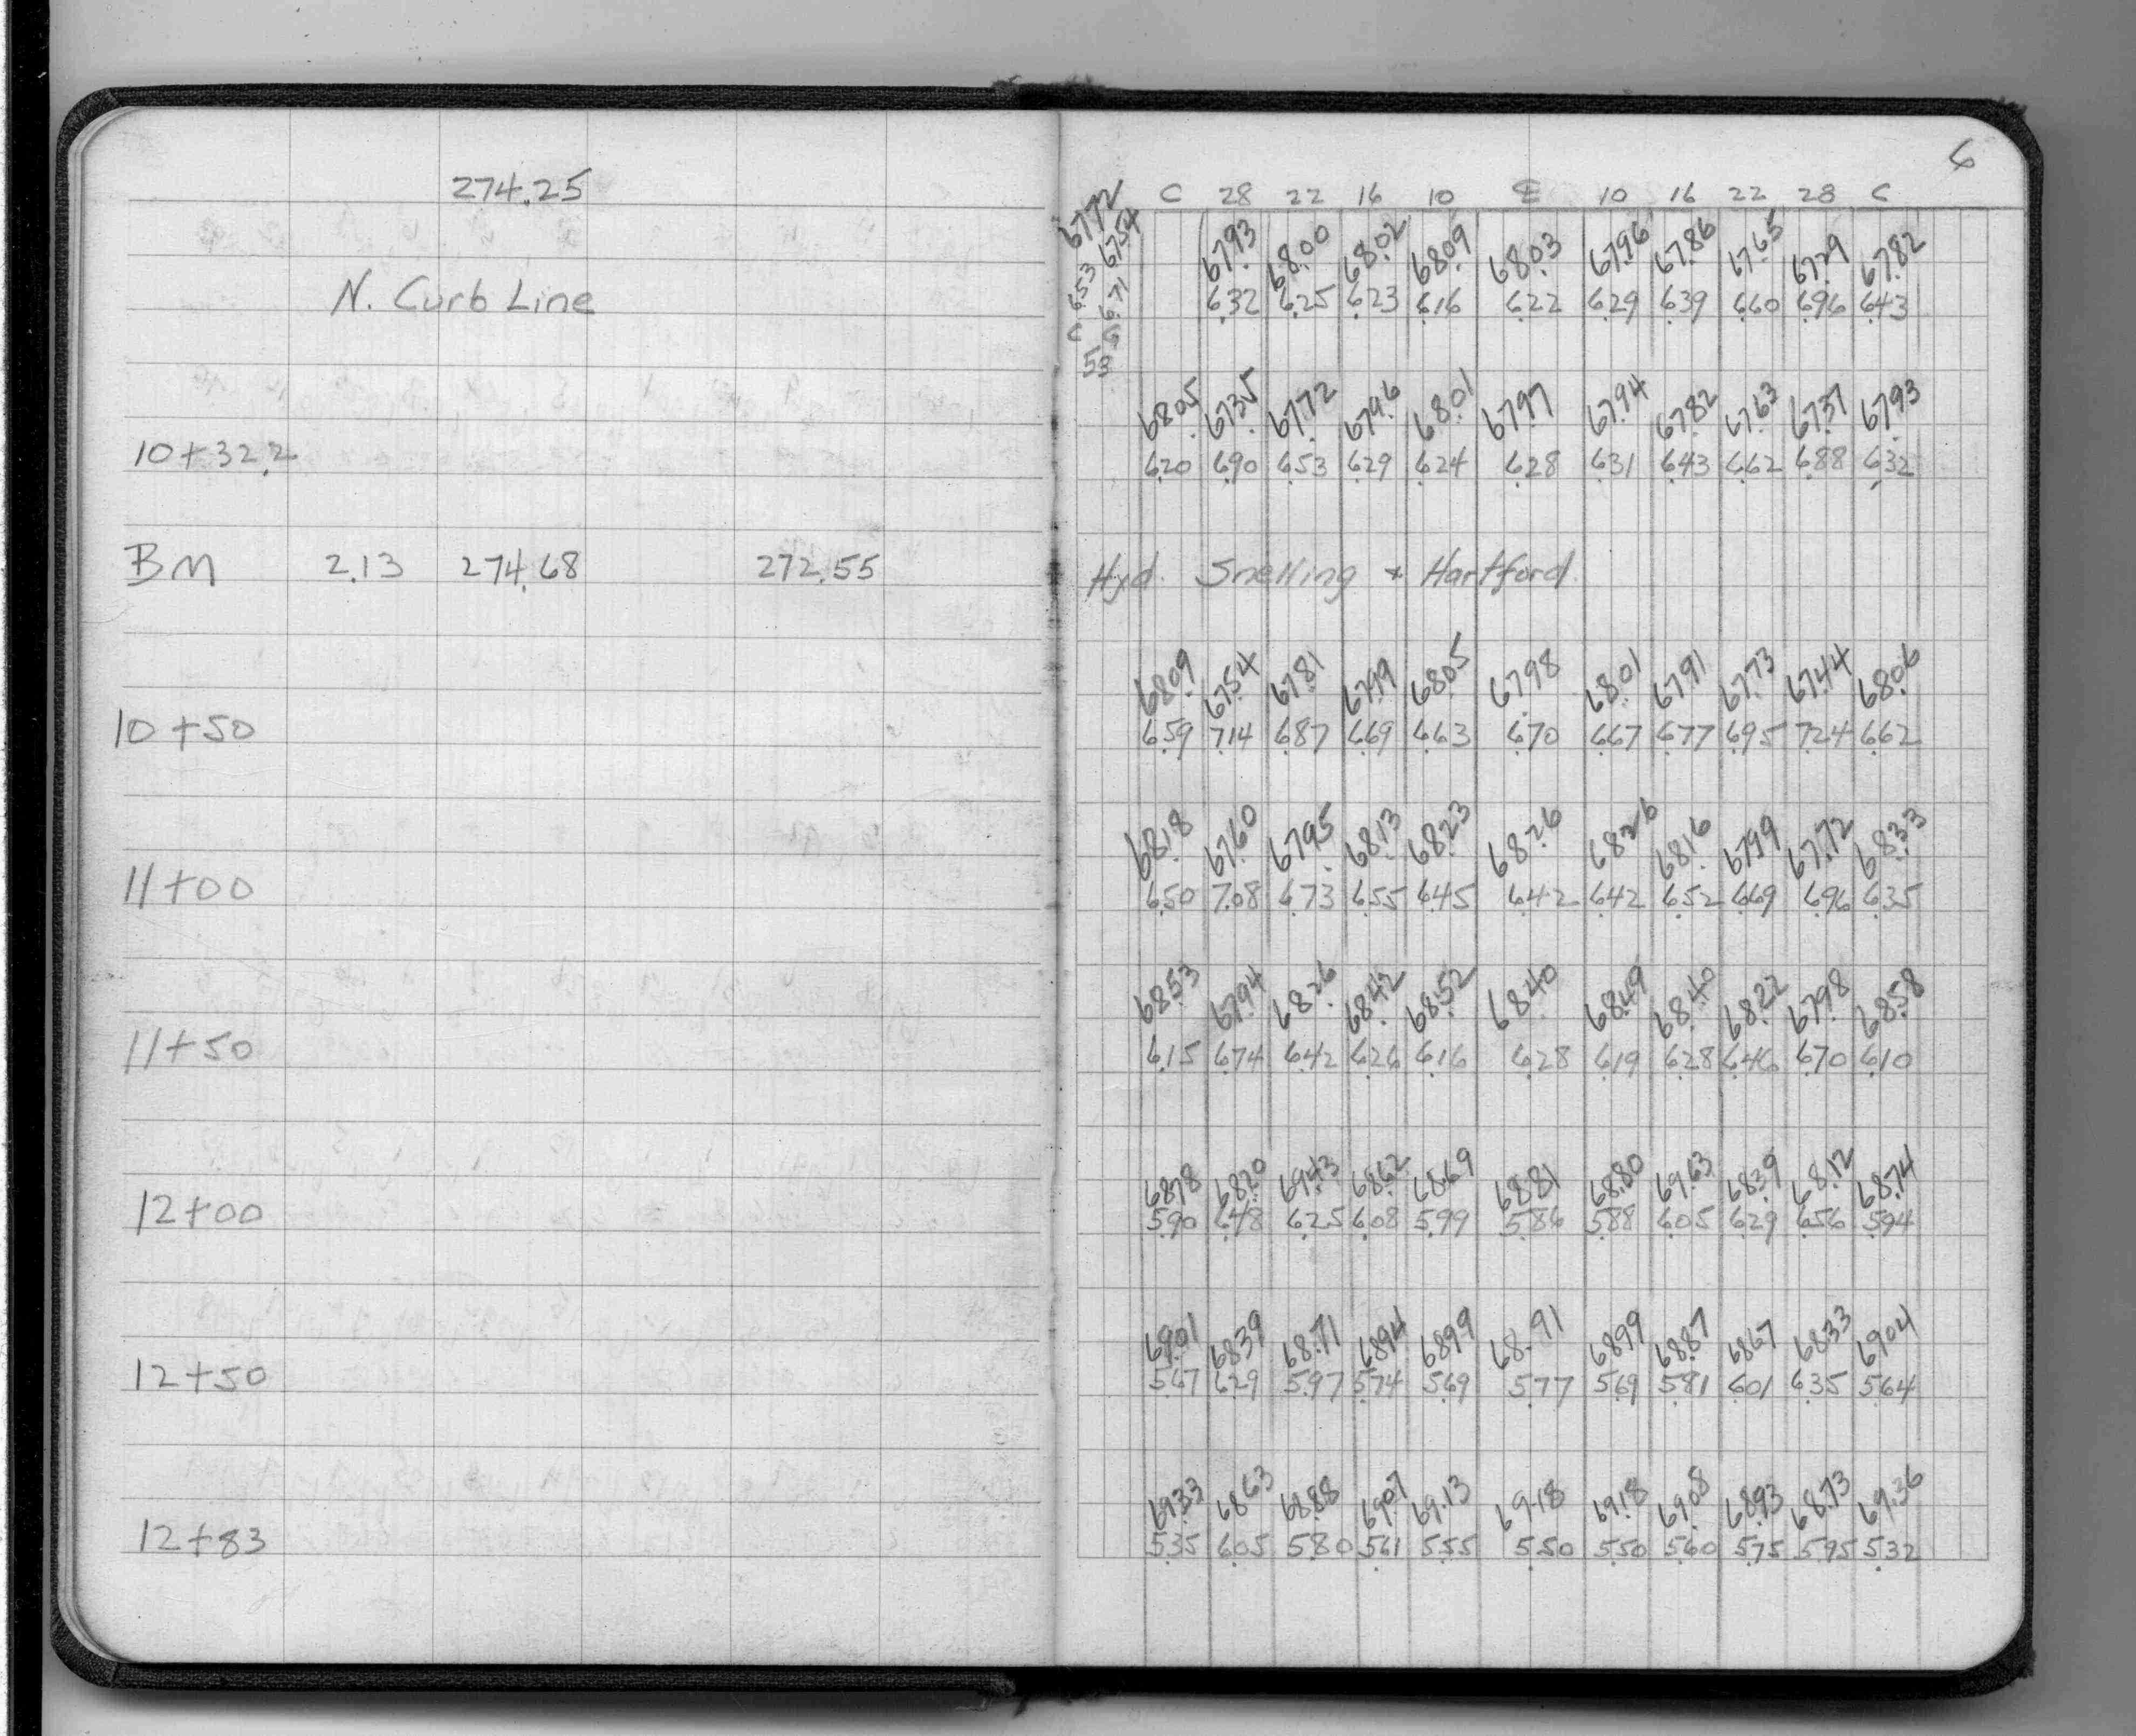 6
274.25
C 28 22 16 10 ℄ 10 16 22 28 C
6772 6754
6.53 6.71
C G
53
67.93 68.00 68.02 6809 68.03 67.96 67.86 67.65 67.29 67.82
N. Curb Line
6.32 6.25 6.23 6.16 6.22 6.29 6.39 6.60 6.96 6.43
68.05 67.35 67.72 67.96 68.01 67.97 67.94 67.82 67.63 67.37 67.93
10+32.2
6.20 6.90 6.53 6.29 6.24 6.28 6.31 6.43 6.62 6.88 6.32
BM 2.13 274.68 272.55 Hyd. Snelling + Hartford
68.09 67.54 67.81 67.99 68.05 67.98 68.01 67.91 67.73 67.44 68.06
10+50
6.59 7.14 6.87 6.69 6.63 6.70 6.67 6.77 6.95 7.24 6.62
68.18 67.60 67.95 68.13 68.23 68.26 68.26 68.16 67.99 67.72 68.33
11+00
6.50 7.08 6.73 6.55 6.45 6.42 6.42 6.52 6.69 6.96 6.35
68.53 67.94 68.26 68.42 68.52 68.40 68.49 68.40 68.22 67.98 68.58
11+50
6.15 6.74 6.42 6.26 6.16 6.28 6.19 6.28 6.46 6.70 6.10
68.78 68.20 69.43 68.62 68.69 68.81 68.80 69.63 68.39 68.12 68.74
12+00
5.90 6.48 6.25 6.08 5.99 5.86 5.88 6.05 6.29 6.56 5.94
69.01 68.39 68.71 68.94 68.99 68.91 68.99 68.87 68.67 68.33 69.04
12+50
5.67 6.29 5.97 5.74 5.69 5.77 5.69 5.81 6.01 6.35 5.64
69.33 68.63 68.88 69.07 69.13 69.18 69.18 69.08 68.93 68.73 69.36
12+83
5.35 6.05 5.80 5.61 5.55 5.50 5.50 5.60 5.75 5.95 5.32